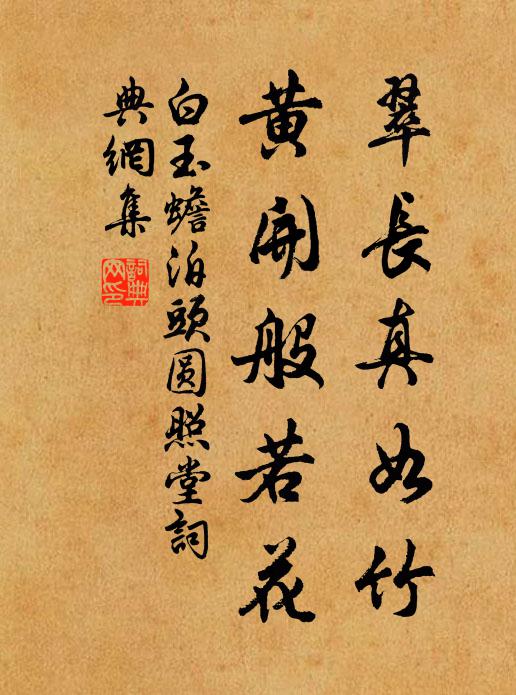 翠長真如竹
黃開般若花
白玉蟾泊頭圓照堂詞
典網集
詞典网印